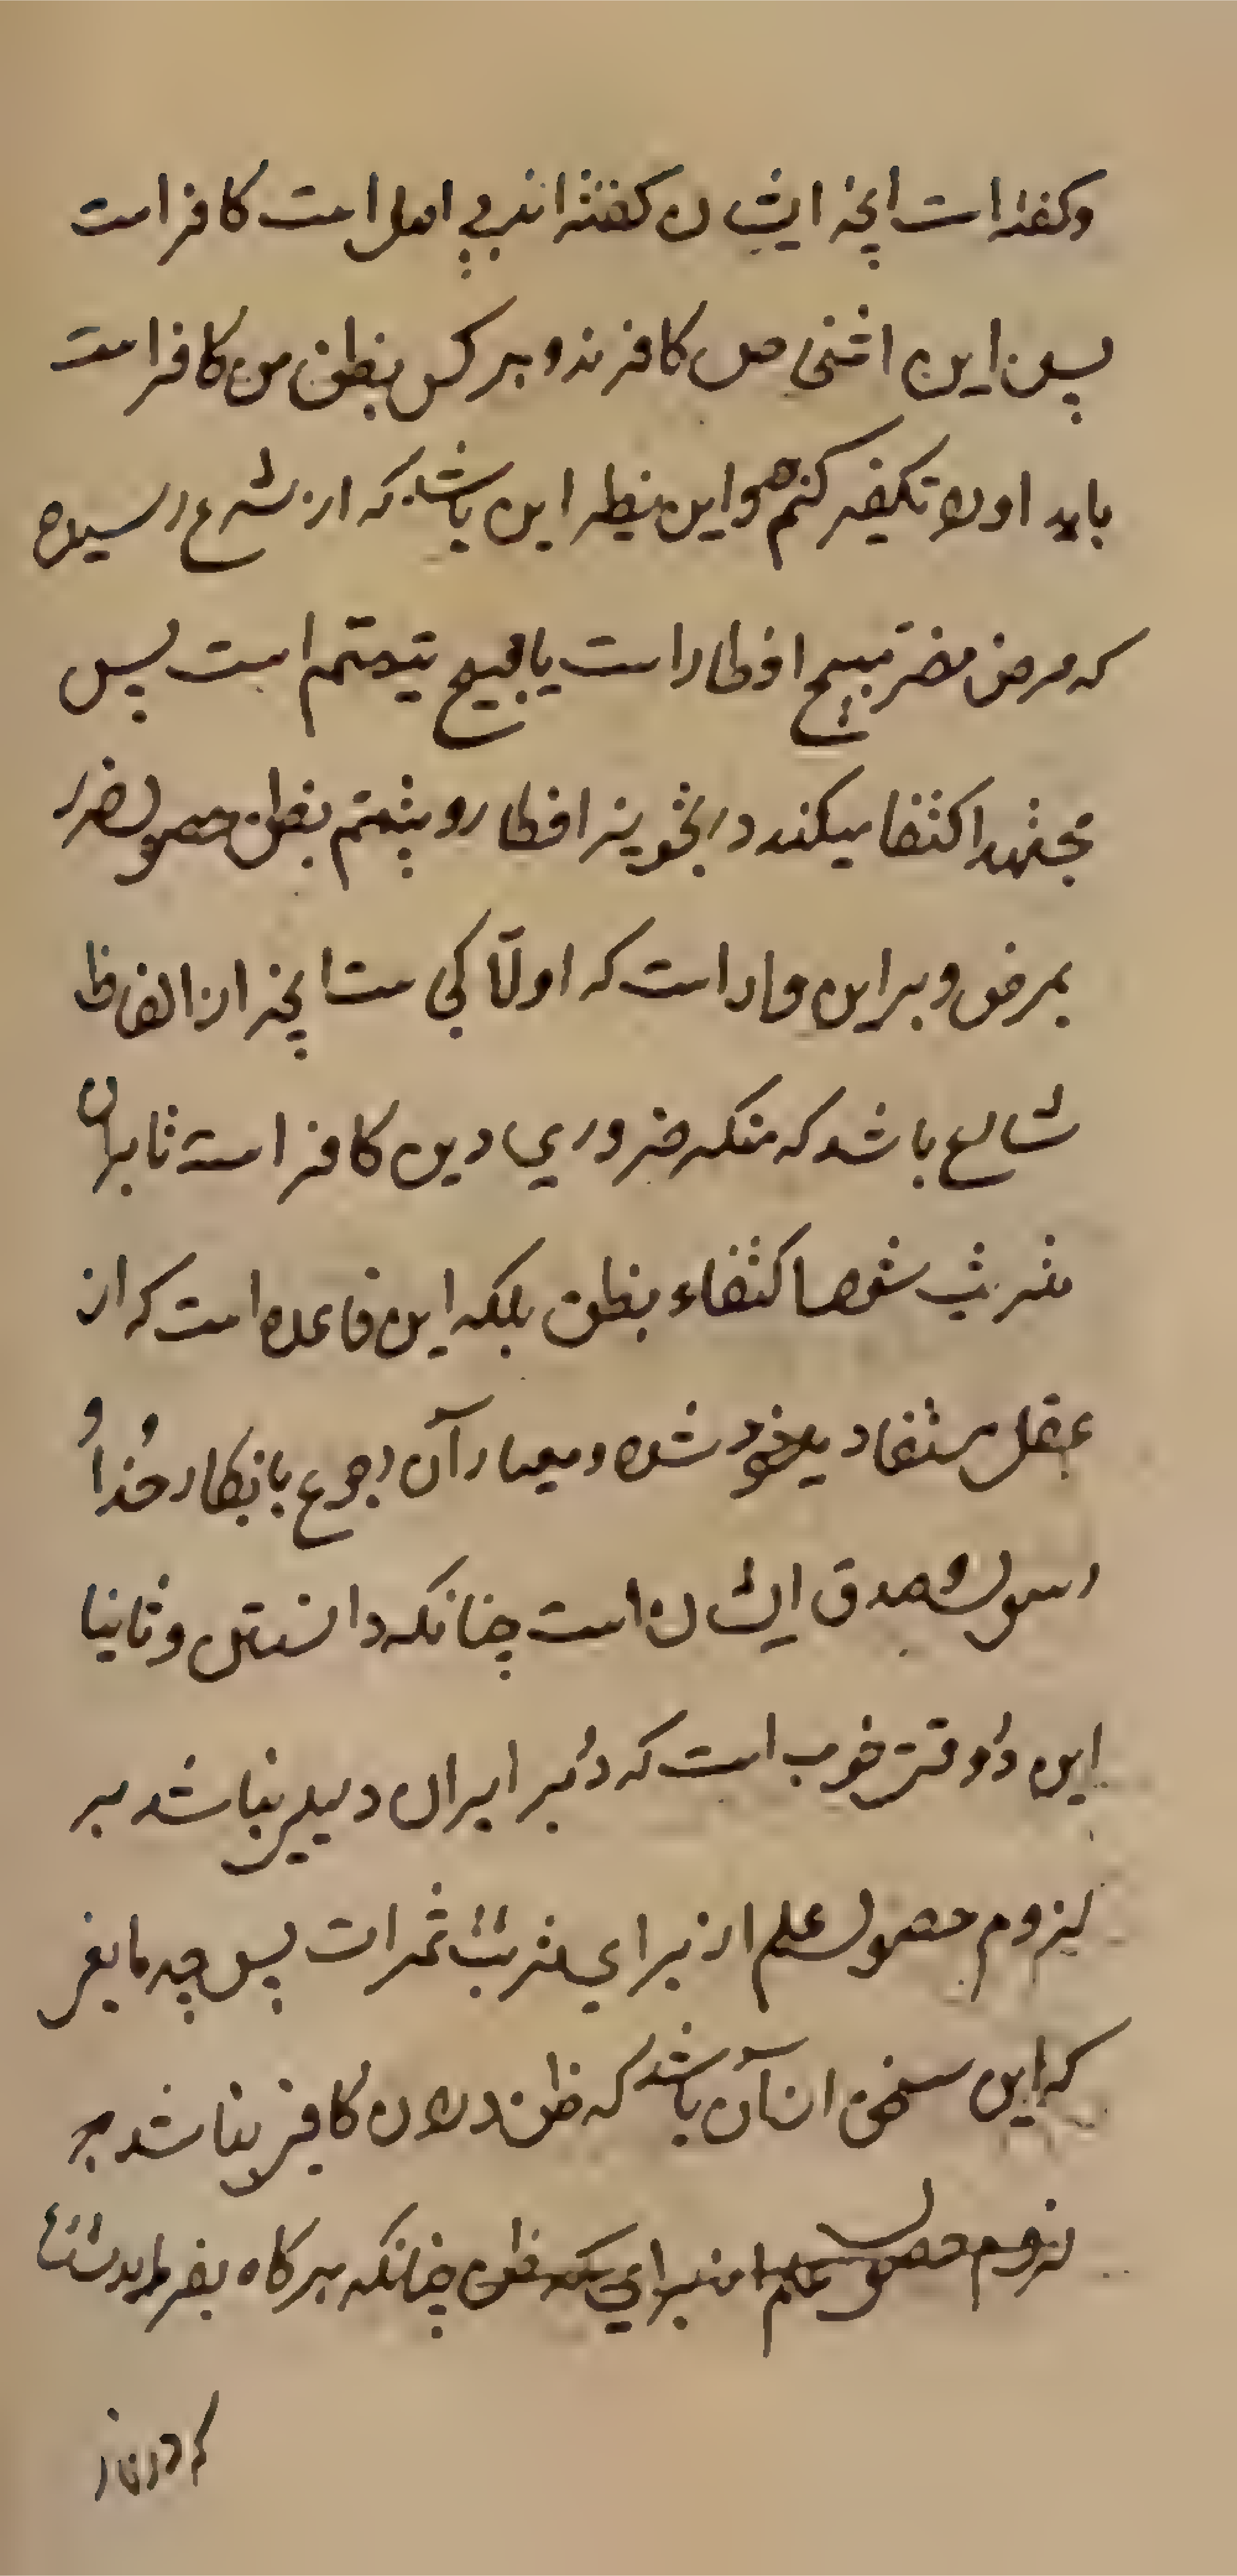 و گفته است انچه ایشان گفته اند بی اصل است کافر است
پس این اشخاص کافرند و هر کس بظن من کافر است
باید او را تکفیر کنم و این نظیر این باشد که از شرع رسیده
که مرض مضر مبیح افطار است یا مبیح تیمم است پس
مجتهد اکتفا میکند در تجویز افطار و تیمم بظن حصول ضرر
بمرض و بر این وارد است که اولا کی است انچه از الفاظ
شارع باشد که منکر ضروری دین کافر است تا بران
مترتب شود اکتفاء بظن بلکه این قاعده است که از
عقل مستفاد شده و معیار آن رجوع بانکار خدا و
رسول و صدق ایشان است چنانکه دانستی و ثانیا
این در وقتی خوب است که در برابر آن دلیلی نباشد بر
لزوم حصول علم از برای ترتب ثمرات پس چه مانعی
که این سخن از آن باشد که ظن در آن کافی نباشد
لزوم حصول علم از برای چنانکه هر گاه بفرماید
که در نماز